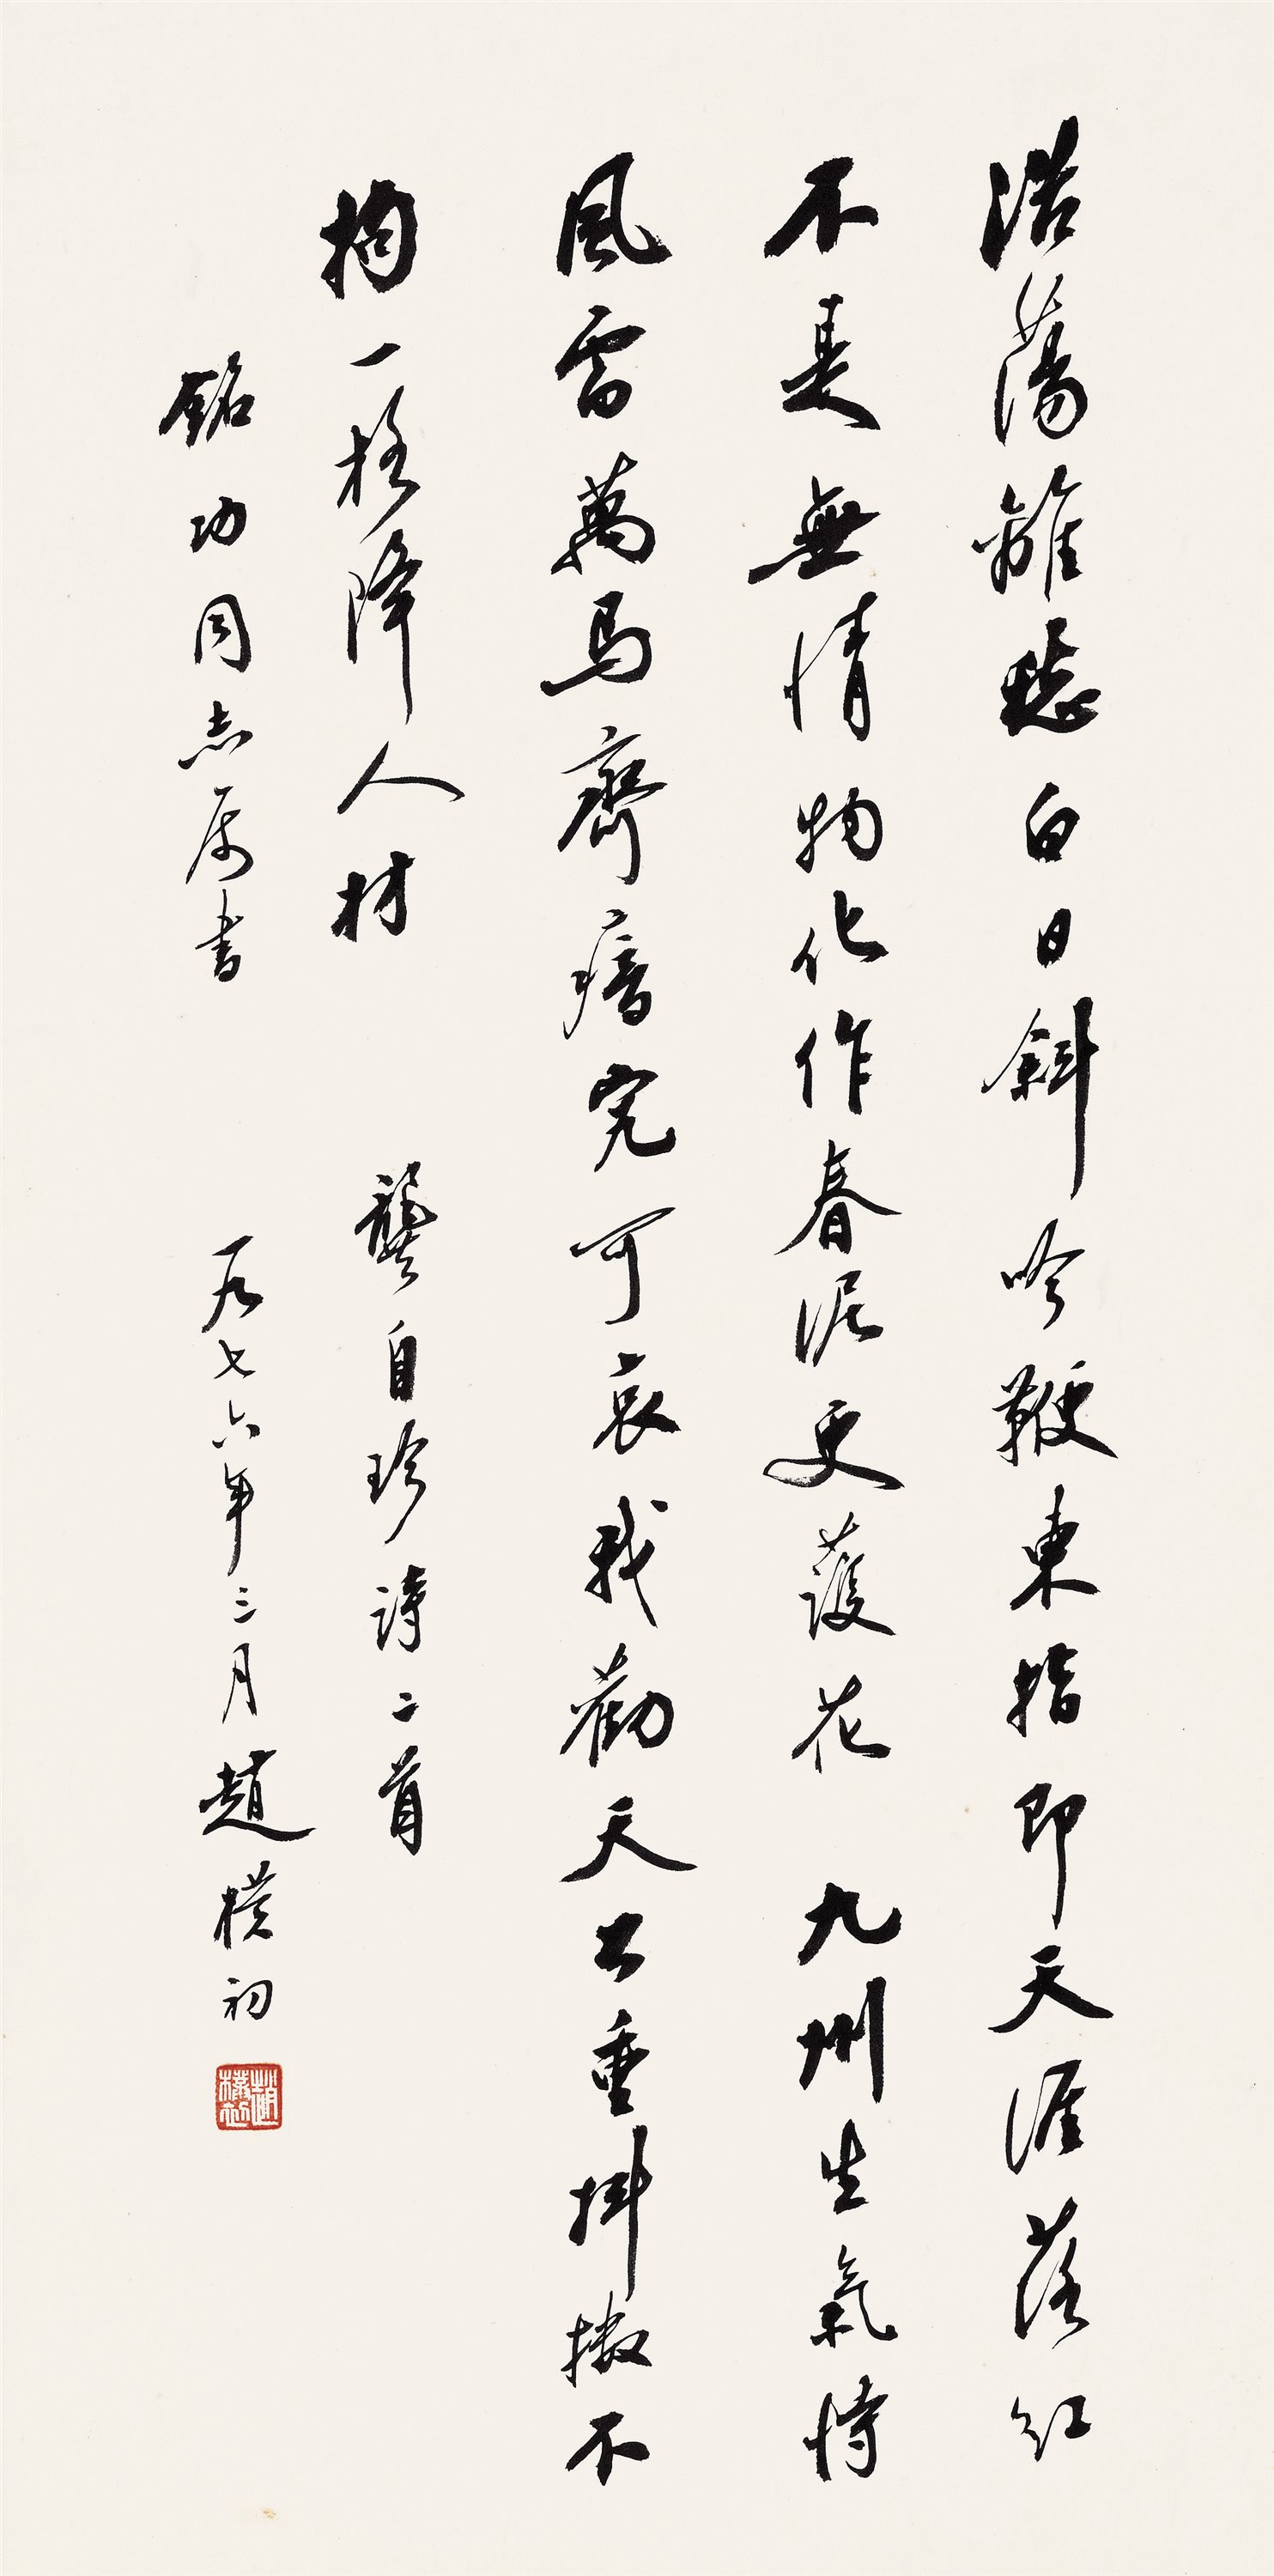 浩蕩離愁白日斜吟鞭東指即天涯落紅
不是無情物化作春泥更護花 九州生氣恃
風雷萬馬齊瘖究可哀我勸天公重抖擻不
拘一格降人材 龔自珍詩二首
銘功同志属書 一九七六年三月趙樸初
趙樸初